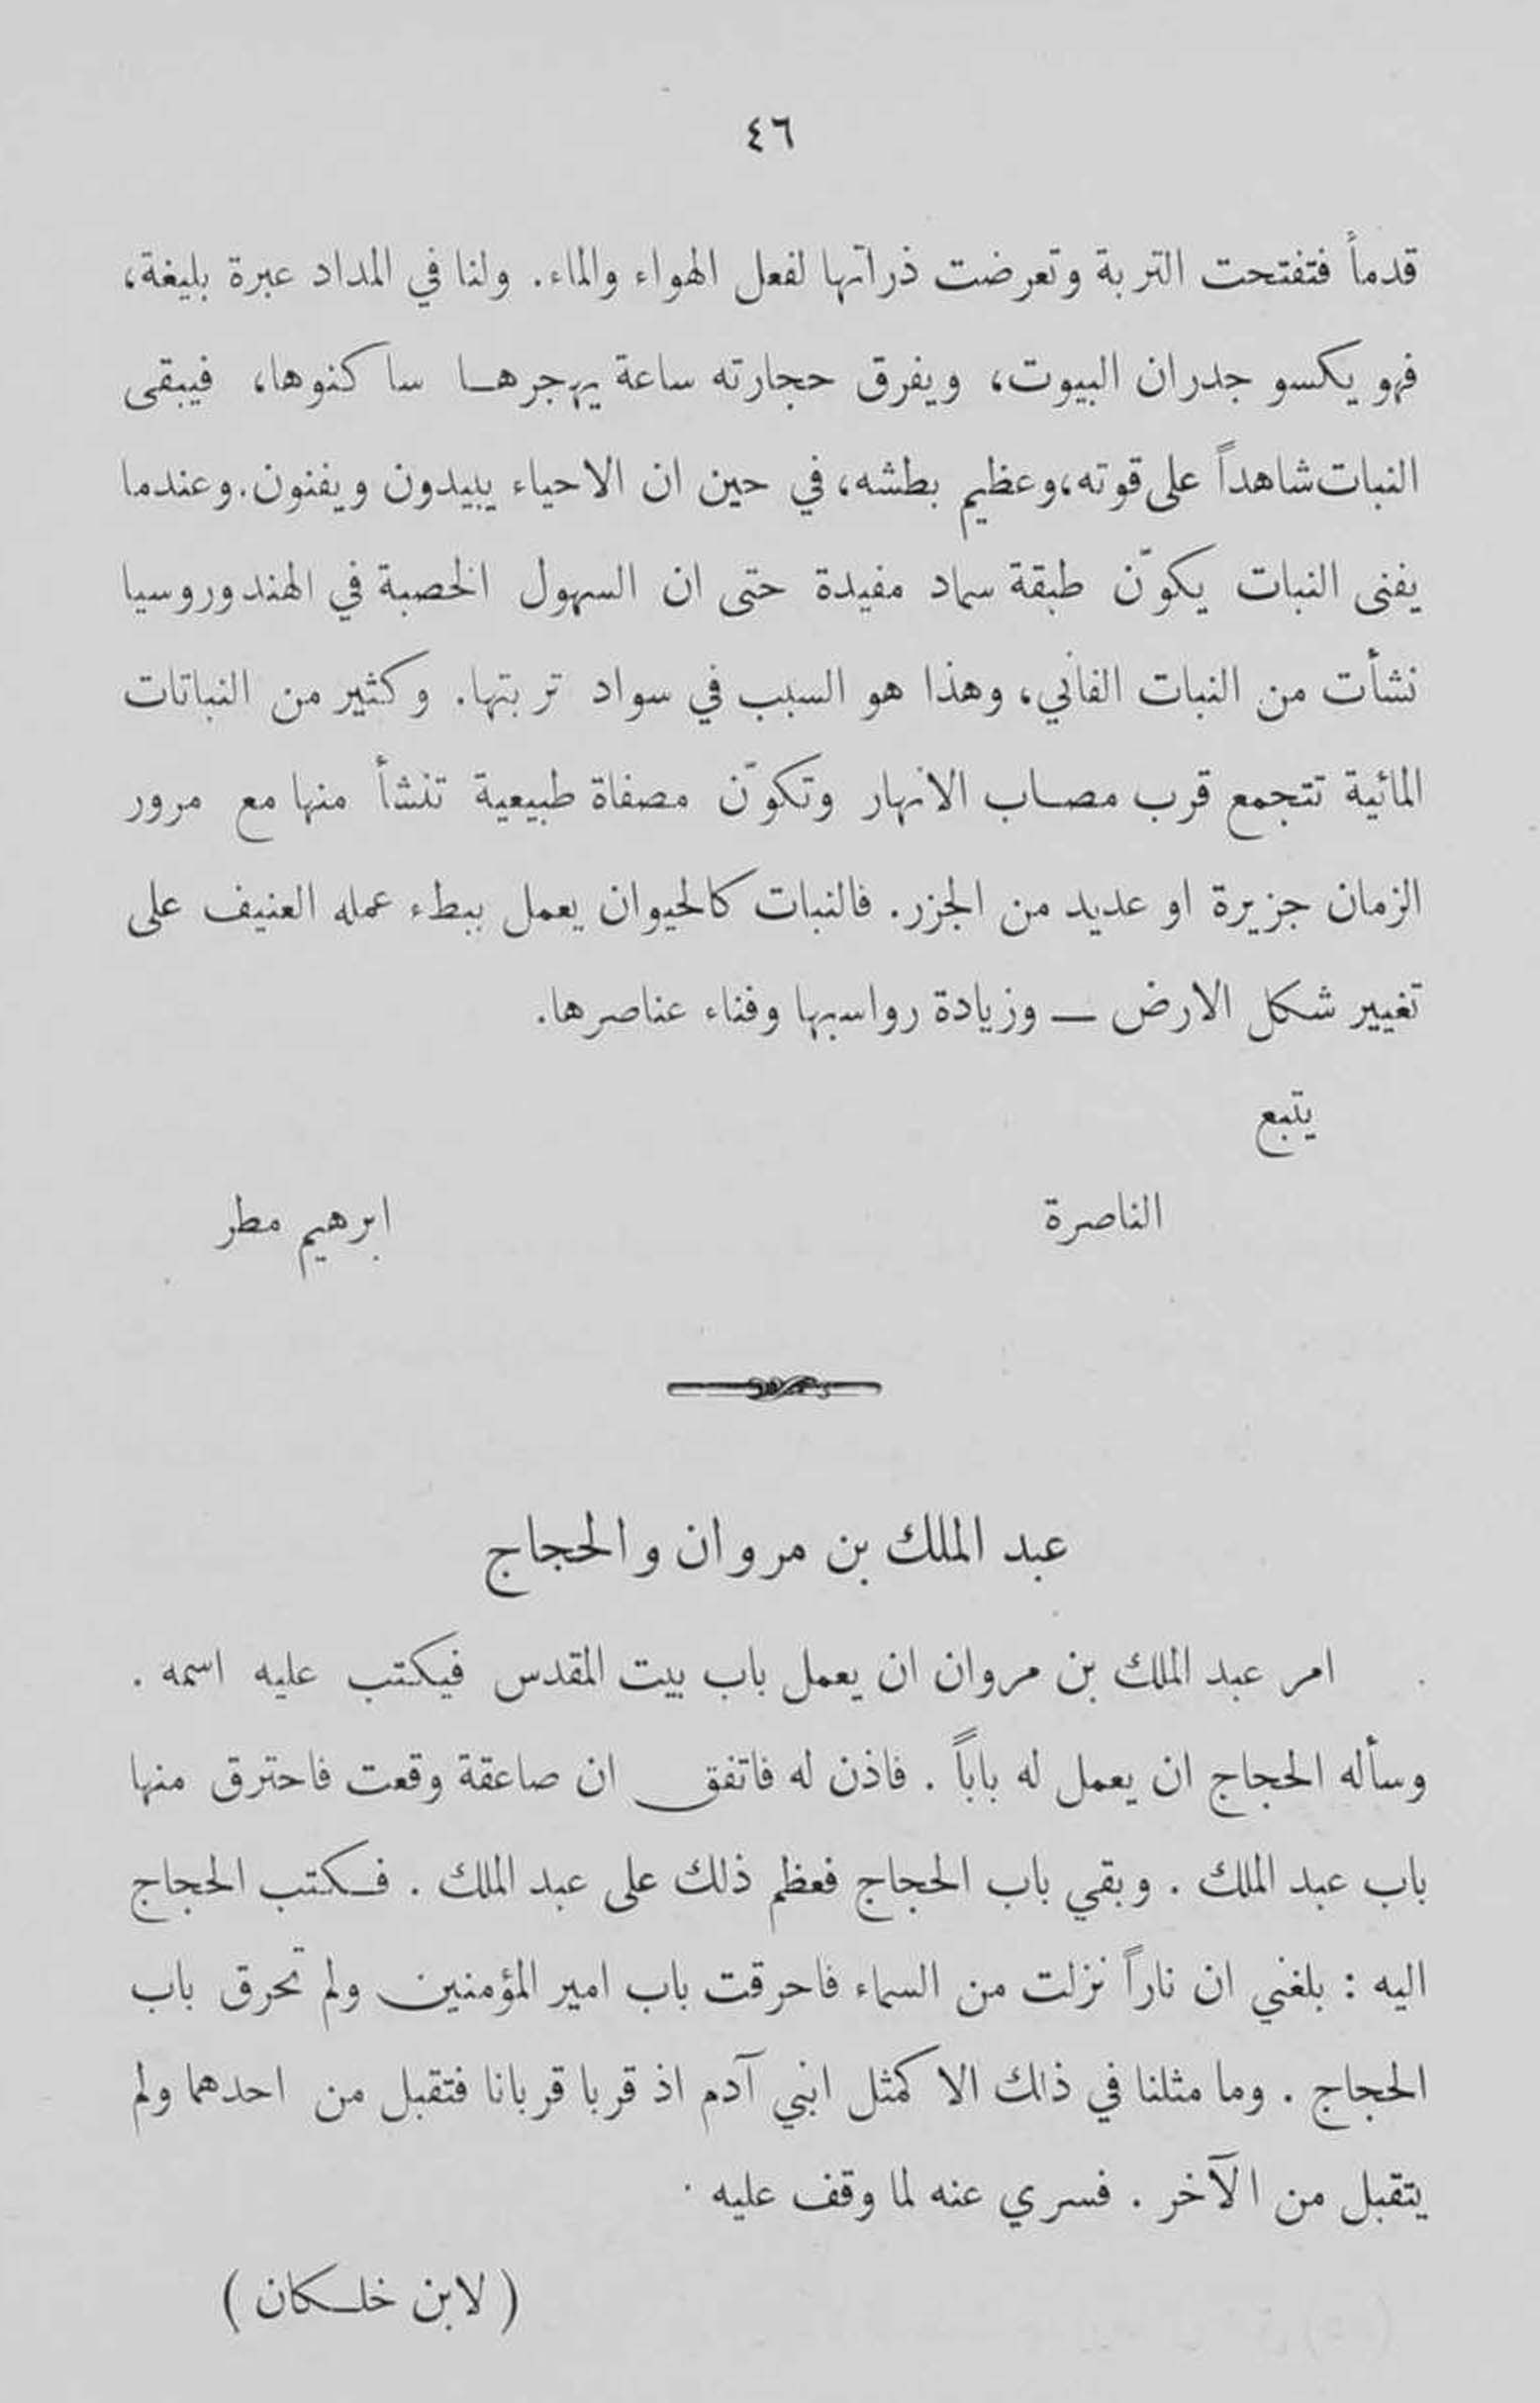 ٤٦
قدماً فتفتحت التربة وتعرضت ذراتها لفعل الهواء والماء. ولنا في المداد عبرة بليغة،
فهو يكسو جدران البيوت، ويفرق حجارته ساعة يهجرها ساكنوها، فيبقى
النبات شاهداً على قوته، وعظيم بطشه، في حين ان الاحياء يبيدون ويفنون. وعندما
يفنى النبات يكوّن طبقة سماد مفيدة حتى ان السهول الخصبة في الهند وروسيا
نشأت من النبات الفاني، وهذا هو السبب في سواد تربتها. وكثير من النباتات
المائية تتجمع قرب مصاب الانهار وتكوّن مصفاة طبيعية تنشأ منها مع مرور
الزمان جزيرة او عديد من الجزر. فالنبات كالحيوان يعمل ببطء عمله العنيف على
تغيير شكل الارض — وزيادة رواسبها وفناء عناصرها.
يتبع
الناصرة ابرهيم مطر
عبد الملك بن مروان والحجاج
امر عبد الملك بن مروان ان يعمل باب بيت المقدس فيكتب عليه اسمه .
وسأله الحجاج ان يعمل له باباً . فاذن له فاتفق ان صاعقة وقعت فاحترق منها
باب عبد الملك . وبقي باب الحجاج فعظم ذلك على عبد الملك . فكتب الحجاج
اليه : بلغني ان ناراً نزلت من السماء فاحرقت باب امير المؤمنين ولم تحرق باب
الحجاج . وما مثلنا في ذلك الا كمثل ابني آدم اذ قربا قربانا فتقبل من احدهما ولم
يتقبل من الآخر . فسري عنه لما وقف عليه .
( لابن خلكان )